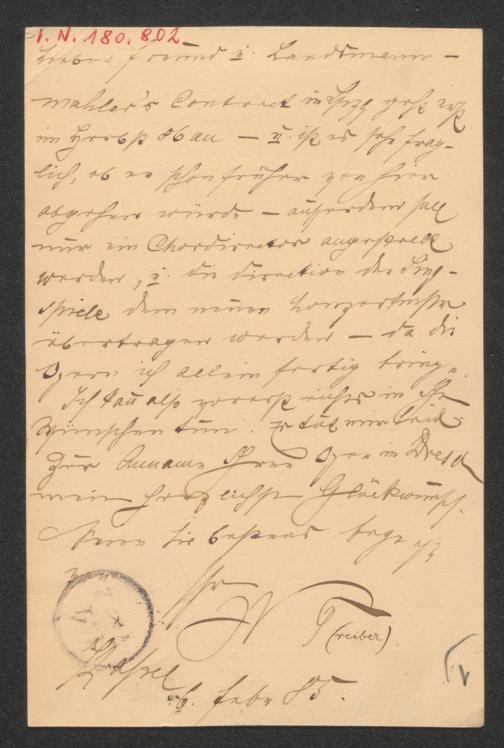 I. N. 180.802
Lieber Freund u. Landsmann –
Mahler's Contract in Lpzg geht erst
im Herbst 86 an – u. ist es sehr frag-
lich, ob er schon früher von hier
abgehen würde – außerdem soll
nur ein Chordirector angestellt
werden, u. die Direction der Sing-
spiele dem neuen Konzertmstr
übertragen werden – da die
Opern ich allein fertig bringe.
Ich kann also vorerst nichts in Ihren
Wünschen tun. Es tut mir leid.
Zur Annahme Ihrer Oper in Dresd
mein herzlichster Glückwunsch.
Seien Sie bestens begrüßt
von Ihr
W Treiber
(reiber)
Kassel
6. Febr 85.